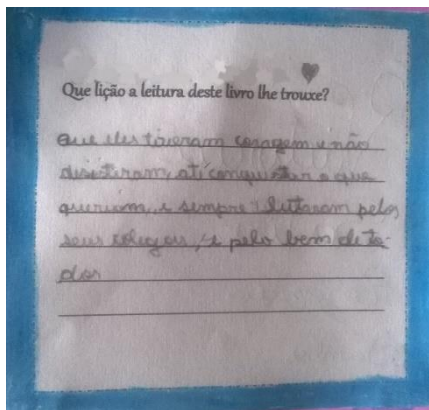 Que lição a leitura deste livro lhe trouxe?
Que eles tiveram coragem e não
desistiram, até conquistar o que
queriam, e sempre lutaram pelos
seus colegas, e pelo bem de to-
dos